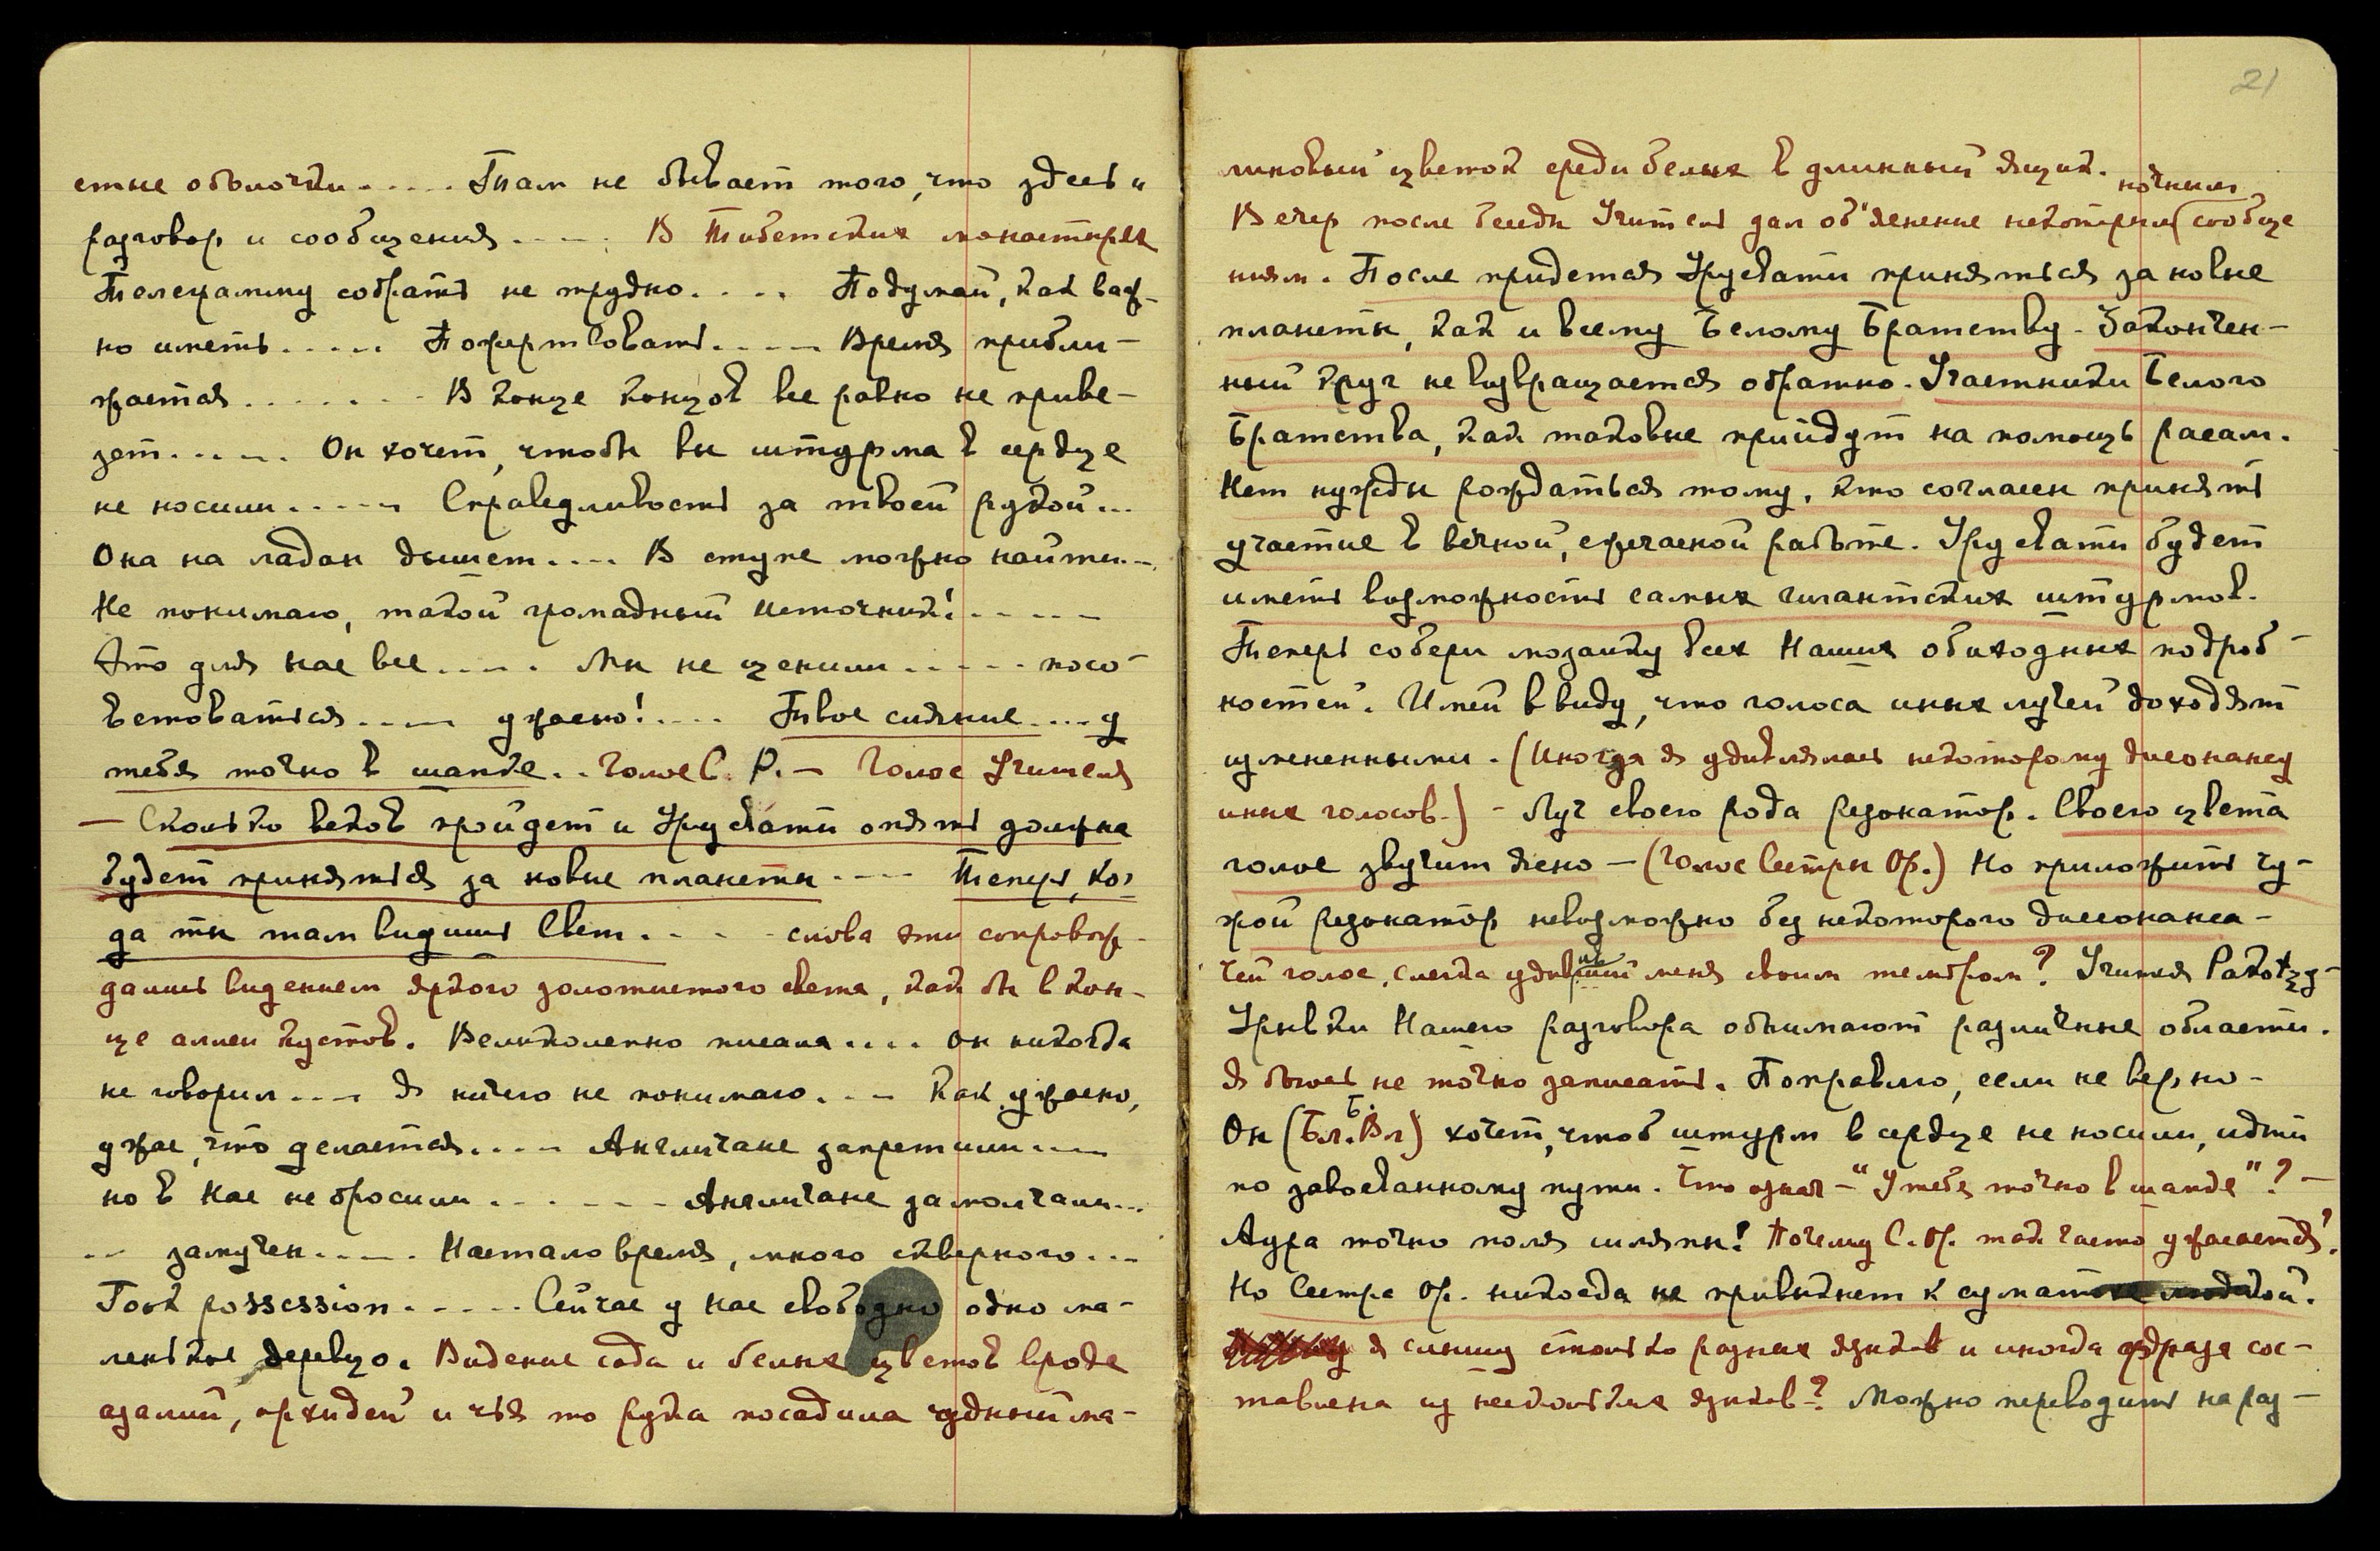 стые оболочки..... Там не бывает того, что здесь и
разговор и сообщения..... В Тибетских монастырях
Телеграмму собрать не трудно.... Подумай, как важ-
но иметь..... Пожертвовать..... Время прибли-
жается....... В конце концов все равно не приве-
зет..... Он хочет, чтобы вы штурма в сердце
не носили..... Справедливость за твоей рукой...
Она на ладан дышет.... В ступе можно найти...
Не понимаю, такой громадный источник!.....
Это для нас все..... Мы не ценили..... посо-
ветоваться..... ужасно!.... Твое сияние.... у
тебя точно в шапке.. Голос С. Р. — Голос Учителя
— Сколько веков пройдет и Урусвати опять должна
будет приняться за новые планеты.... Теперь, ко-
да ты там видишь Свет..... слова эти сопровож-
дались видением яркого золотистого света, как бы в кон-
це аллеи кустов. Великолепно писала.... Он никогда
не говорил.... Я ничего не понимаю.... Как ужасно,
ужас, что делается..... Англичане запретили....
но в нас не бросили....... Англичане замолчали...
.. замучен..... Настало время, много скверного...
Took possession..... Сейчас у нас свободно одно ма-
ленькое деревцо. Видение сада и белых цветов вроде
азалий, орхидей и чья то рука посадила чудный ма-
21
линовый цветок среди белых в длинный ящик.
ночным
Вечер после беседы Учитель дал об'яснение некоторым сообще
ниям. После придется Урусвати приняться за новые
планеты, как и всему Белому Братству. Закончен-
ный круг не возвращается обратно. Участники Белого
Братства, как таковые прийдут на помощь расам.
Нет нужды рождаться тому, кто согласен принять
участие в вечной, ежечасной работе. Урусвати будет
иметь возможность самых гигантских штурмов.
Теперь собери мозаику всех Наших обиходных подроб-
ностей. Имей в виду, что голоса иных лучей доходят
измененными. (Иногда я удивлялась некоторому диссонансу
иных голосов.) - Луч своего рода резонатор. Своего цвета
голос звучит ясно — (Голос Сестры Ор.) Но приложить чу-
жой резонатор невозможно без некоторого диссонанса -
Чей голос, слегка удививший меня своим тембром? Учителя Ракотзу -
Урывки Нашего разговора обнимают различные области.
Я боюсь не точно записать. Поправлю, если не верно -
Он (Бл. Б. Вл) хочет, чтоб штурм в сердце не носили, идти
по завоеванному пути. Что означ - "У тебя точно в шапке"? -
Аура точно поля шляпы! Почему С. Ор. так часто ужасается?
Но Сестра Ор. никогда не привыкнет к суматохе людской.
я слышу столько разных языков и иногда фраза сос-
тавлена из нескольких языков? Можно переводить на раз-